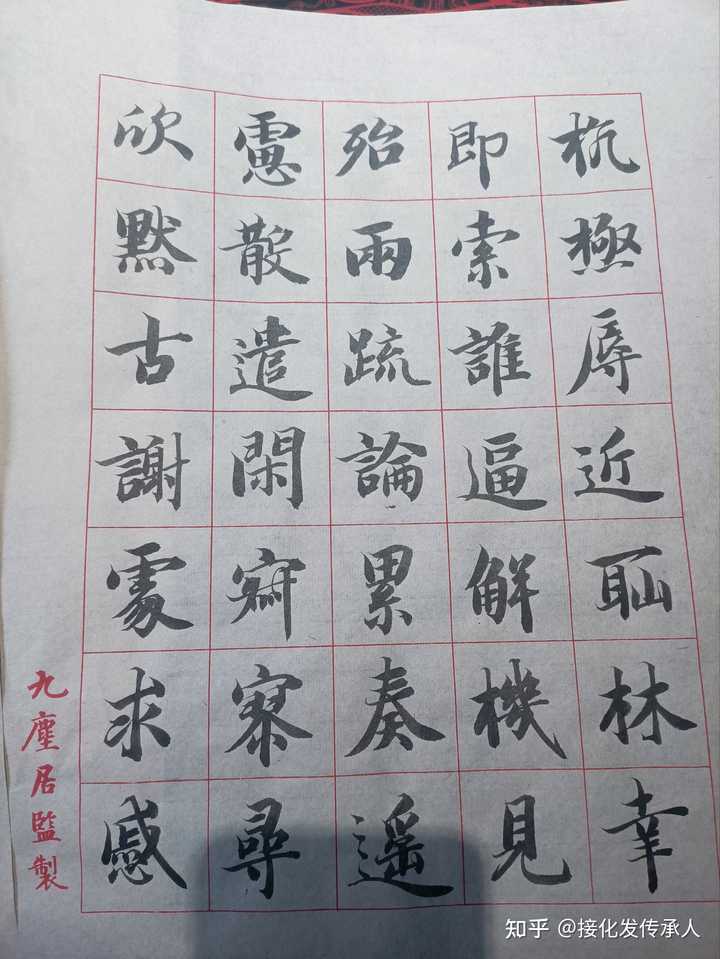 杭極辱近耻林幸
即索誰逼解機見
殆兩疏論累奏遥
慮散遣閑寂寥尋
欣默古謝處求慼
九塵居監製
知乎 @接化发传承人